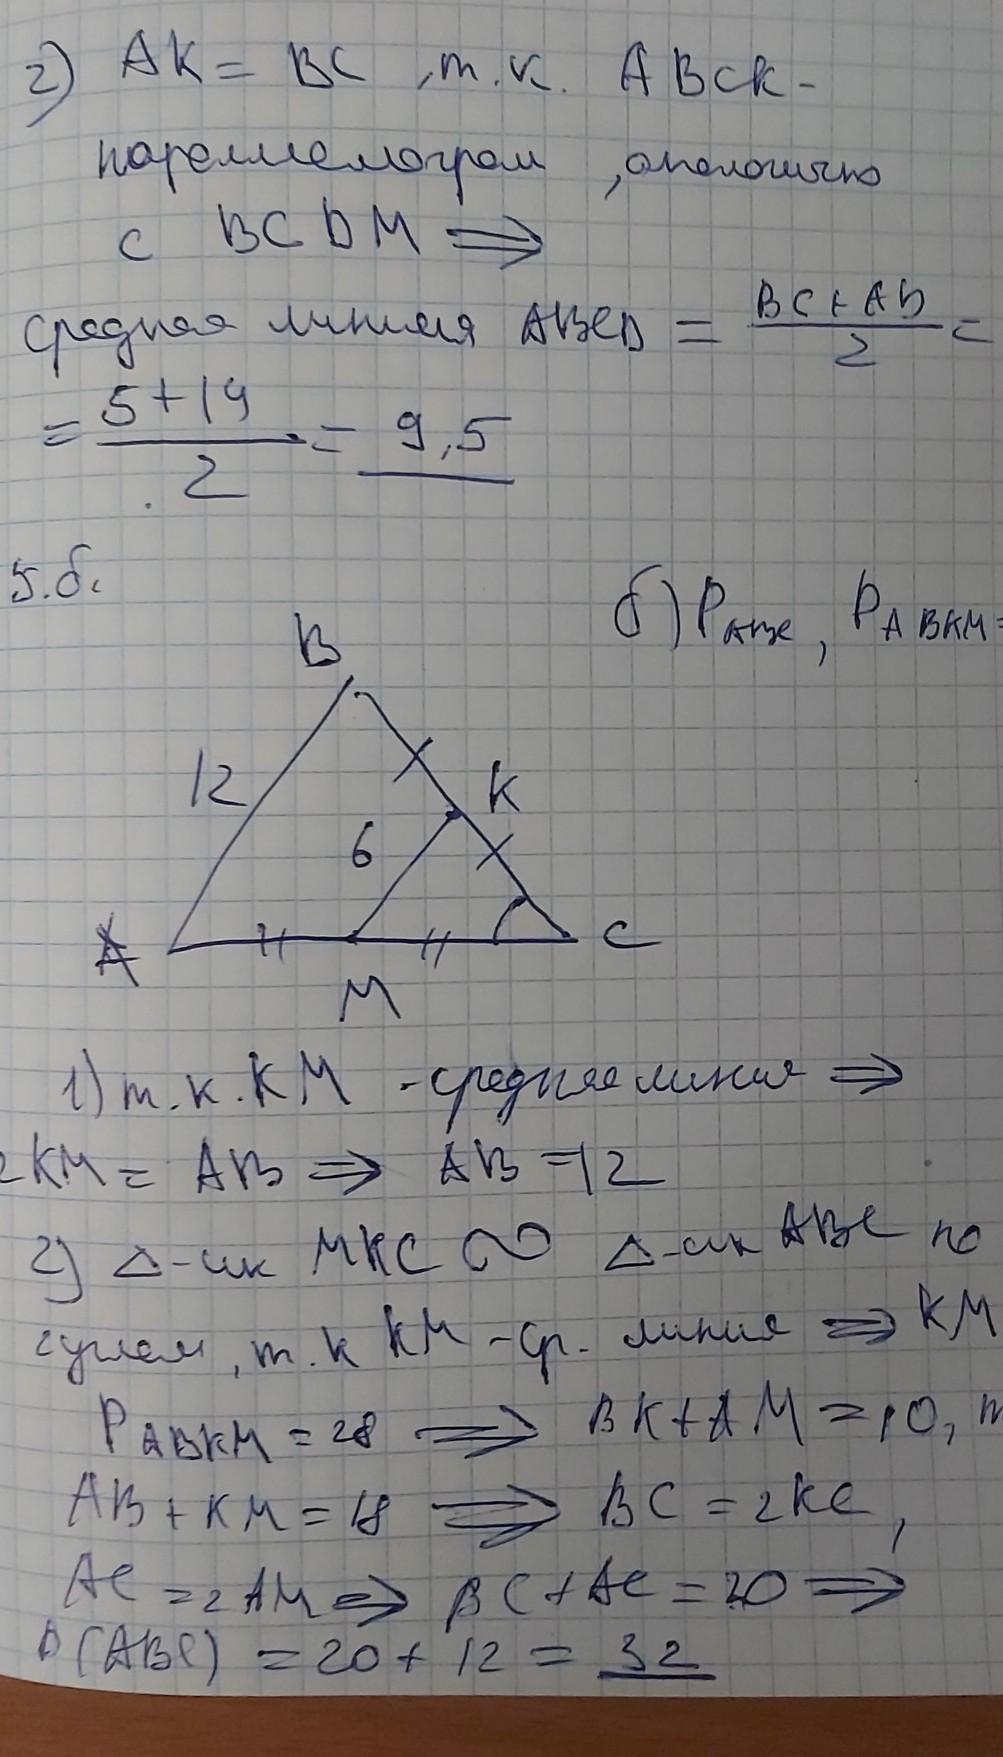 2) AK = BC, т.к. ABCK -
параллелограм, аналогично
с BCDM ⟹
средняя линия ABCD = (BC + AD)/2 =
= (5+14)/2 = 9,5
5.б.
б) P ABC, P ABKM =
B
12
K
6
A
C
M
1) т.к. KM - средняя линия ⟹
2KM = AB ⟹ AB = 12
2) △-ик MKC ∾ △-ик ABC по
2 углам, т.к KM - ср. линия ⟹ KM
P ABKM = 28 ⟹ BK + AM = 10, т
AB + KM = 18 ⟹ BC = 2KC,
AC = 2AM ⟹ BC + AC = 20 ⟹
P(ABC) = 20 + 12 = 32